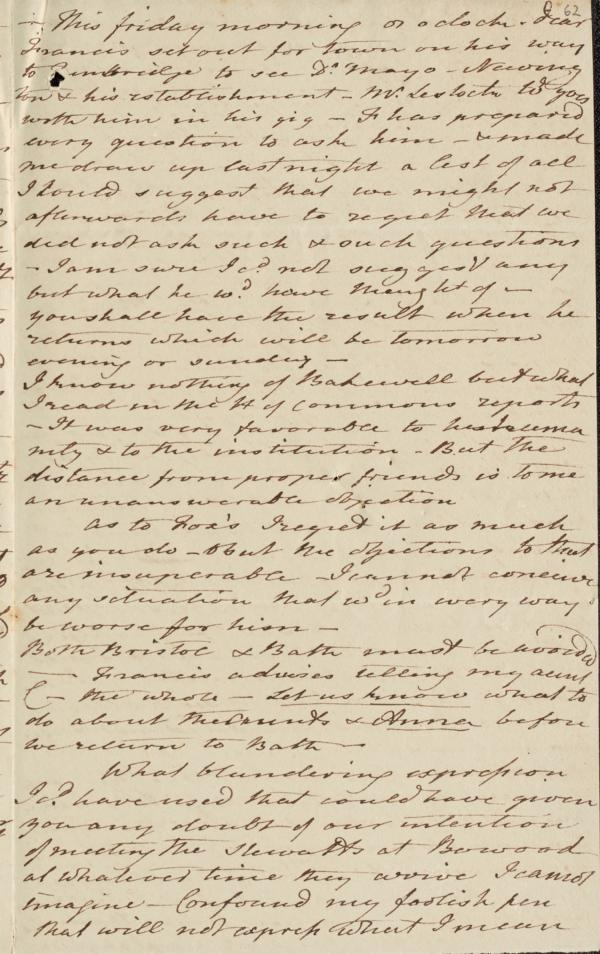 62
– This friday morning 8 oclock. Dear
Francis set out for town on his way
to to see Dr. Mayo – Newing
ton & his establishment – Mr. Lestock to go
with him in his gig – F has prepared
every question to ask him – & made
me draw up last night a list of all
I could suggest that we might not
afterwards have to regret that we
did not ask such & such questions
– I am sure I cd. not suggest any
but what he wd. have thought of –
you shall have the result when he
returns which will be tomorrow
evening or sunday –
I know nothing of Bakewell but what
I read in the H of Commons reports
– It was very favorable to his huma
nity & to the institution – But the
distance from proper friends is to me
an unanswerable objection
As to Fox's I regret it as much
as you do – but the objections to that
are insuperable – I cannot conceive
any situation that wd in every way
be worse for him –
Both Bristol & Bath must be avoided
— Francis advises telling my aunt
C – the whole – Let us know what to
do about the Aunts & Anna before
we return to Bath –
What blundering expression
I cd. have used that could have given
you any doubt of our intention
of meeting the Stewatts at Bowood
at whatever time they arrive I cannot
imagine – Confound my foolish pen
that will not express what I mean